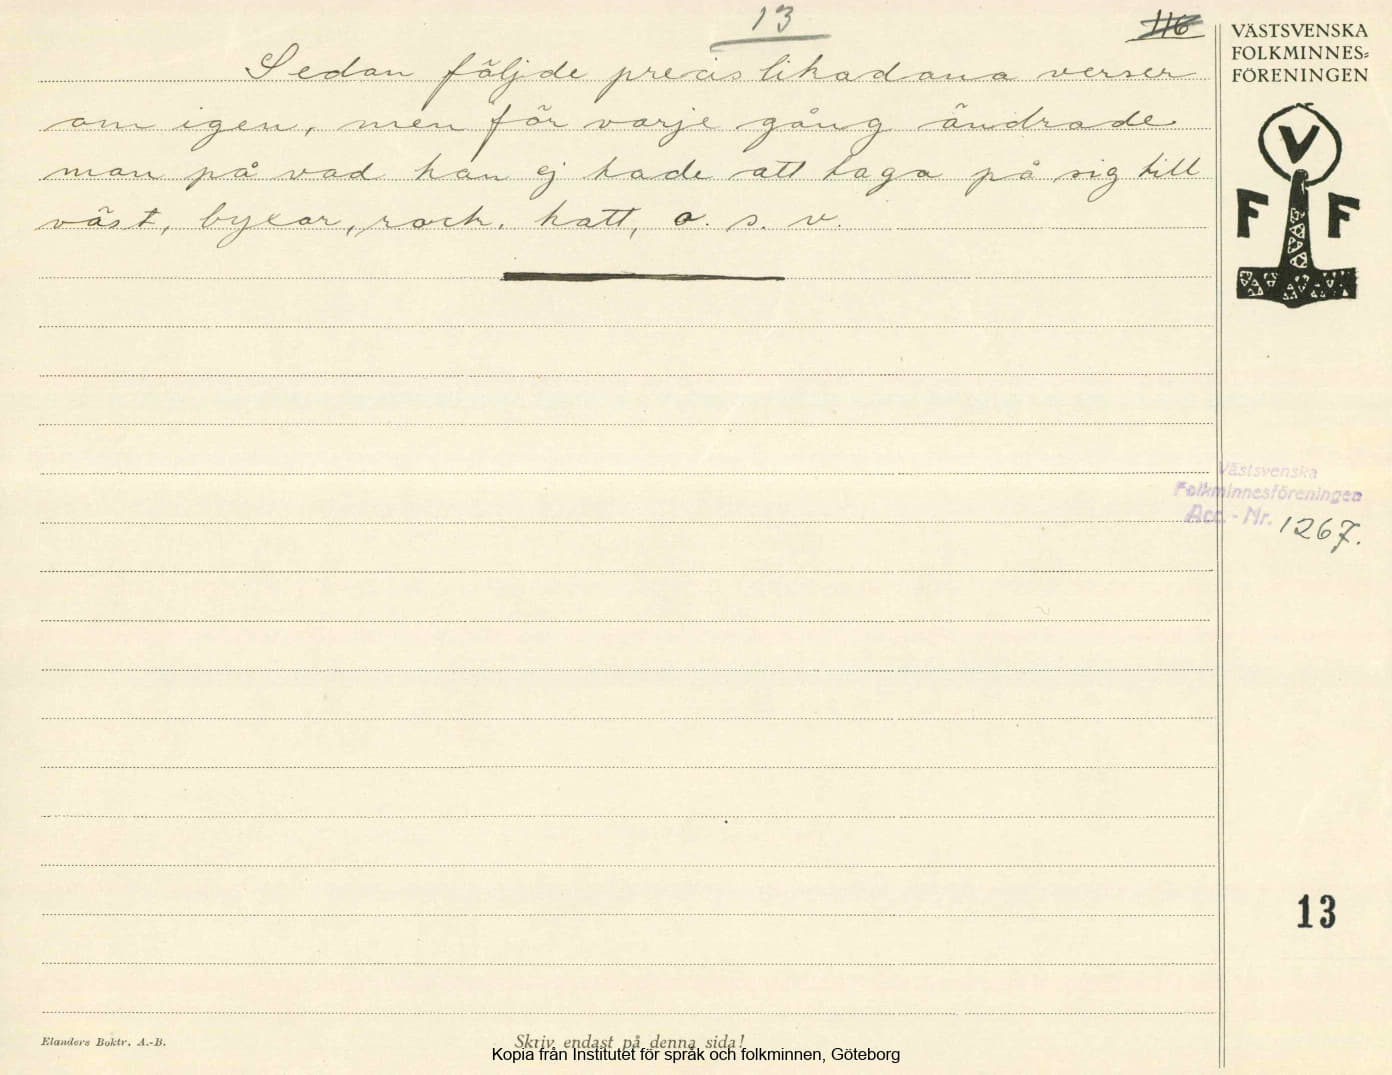 13
116
Sedan följde precis likadana verser
om igen, men för varje gång ändrade
man på vad han ej hade att taga på sig till
väst, byxor, rock, hatt, o. s. v.
VÄSTSVENSKA
FOLKMINNES-
FÖRENINGEN
V
F F
Västsvenska
Folkminnesföreningen
Acc.-Nr. 1267.
13
Elanders Boktr. A.-B.
Skriv endast på denna sida!
Kopia från Institutet för språk och folkminnen, Göteborg